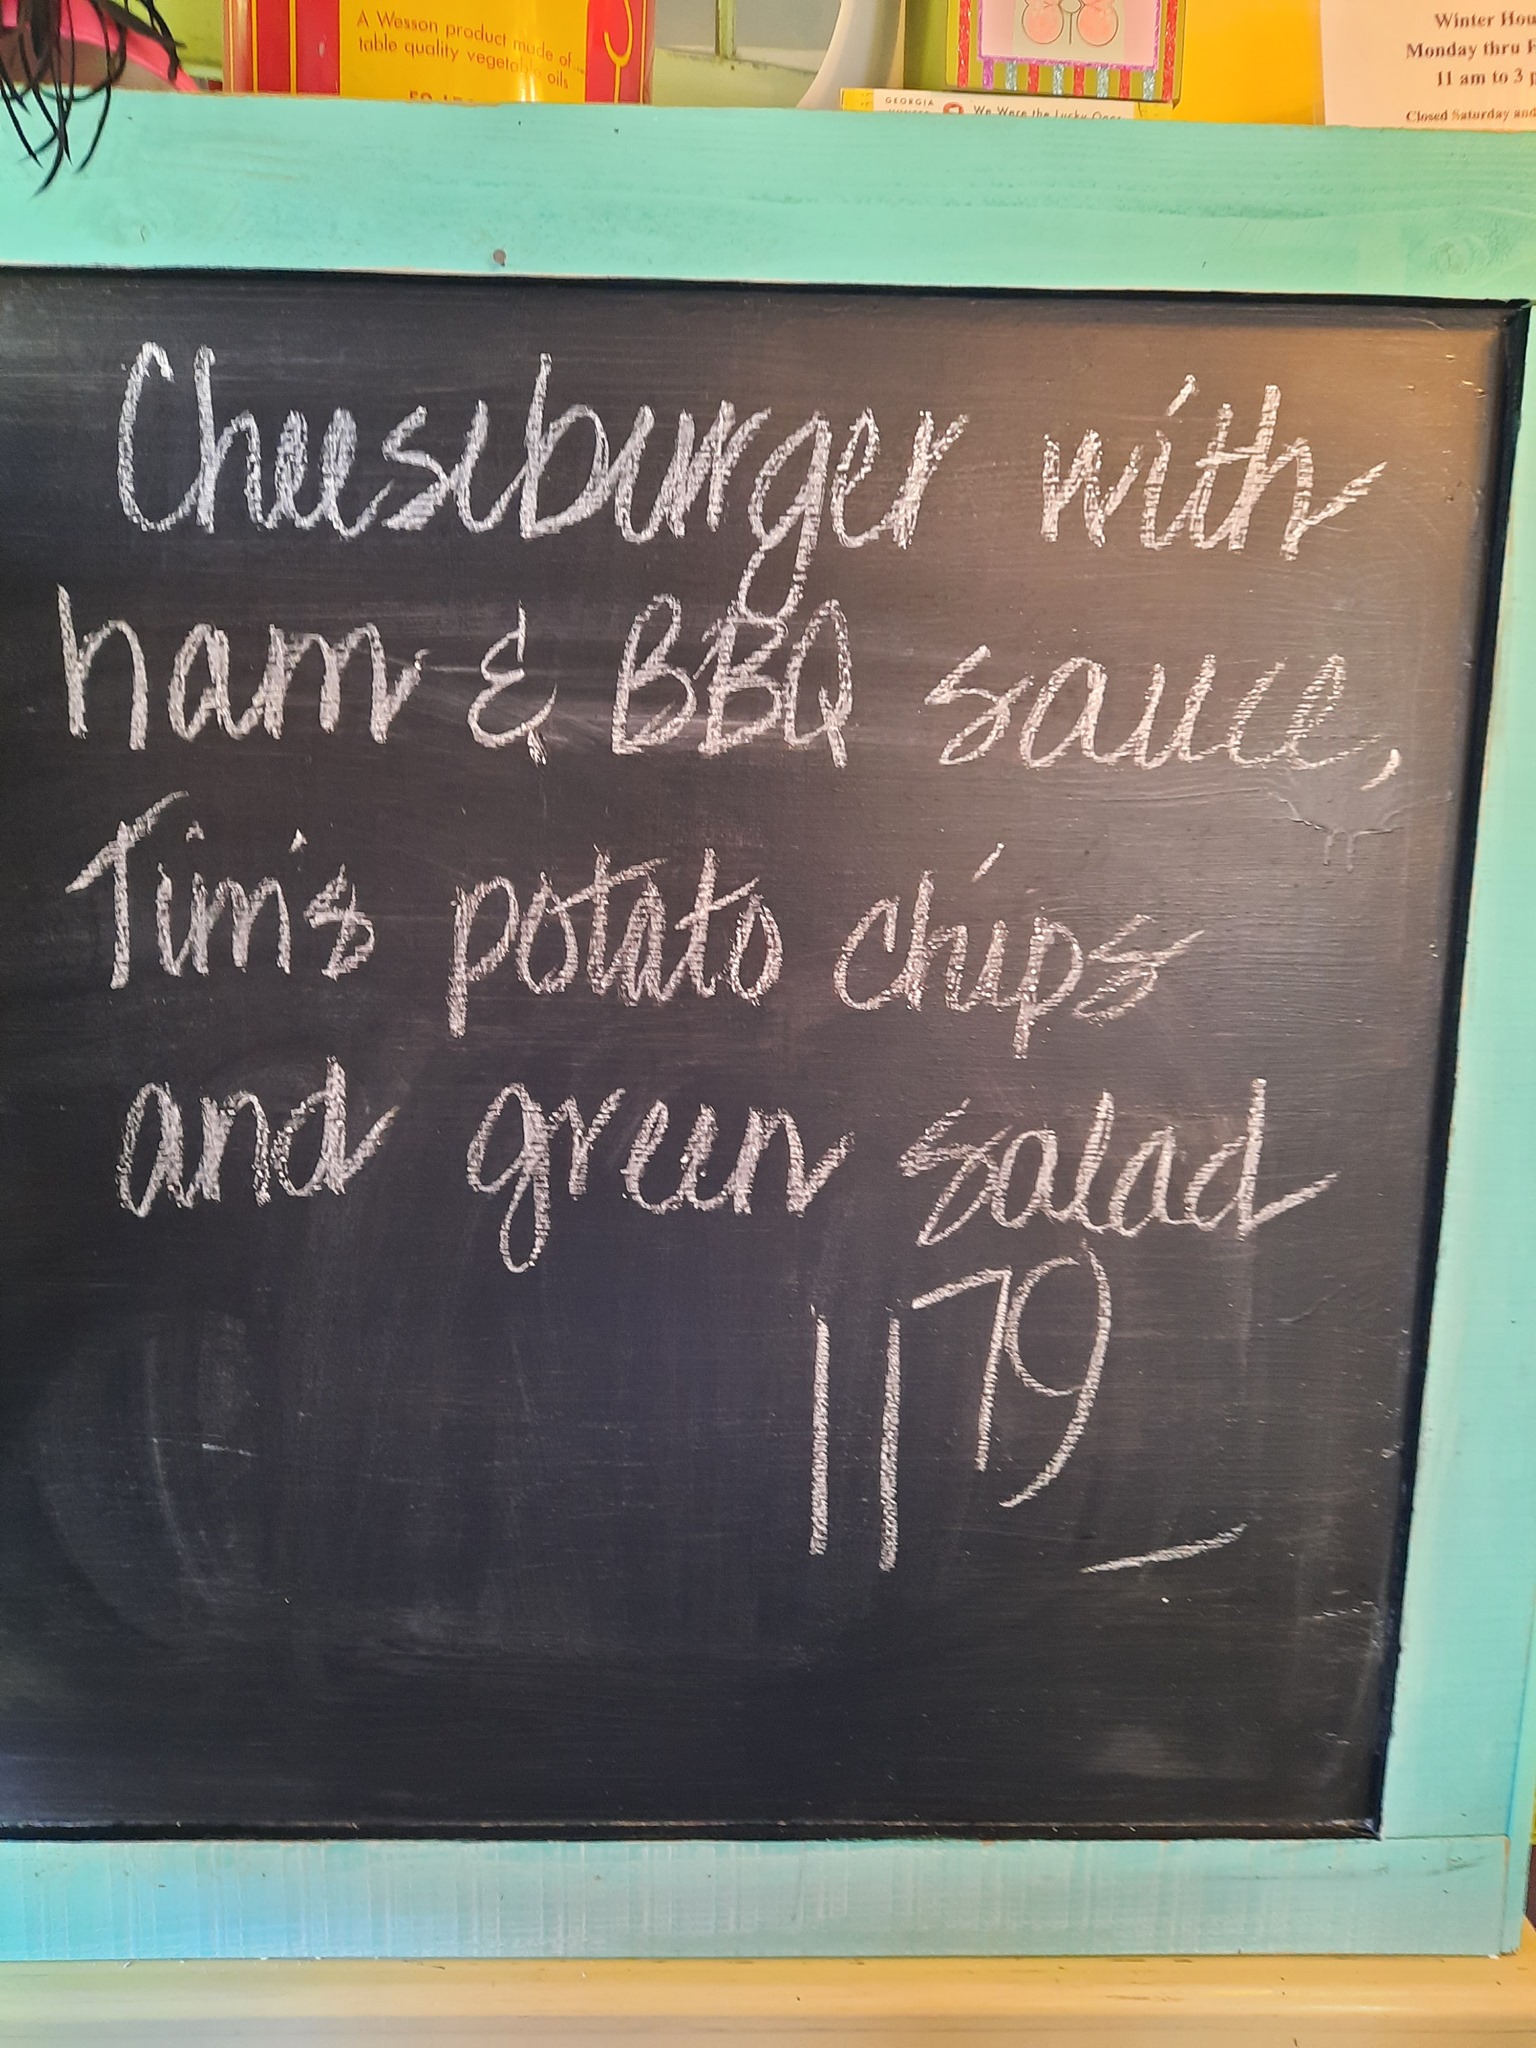 A Wesson product made of
table quality vegetable oils
GEORGIA
We Were the Lucky Ones
Winter Hou
Monday thru F
11 am to 3 p
Closed Saturday and
Cheeseburger with
ham & BBQ sauce,
Tim's potato chips
and green salad
11 79